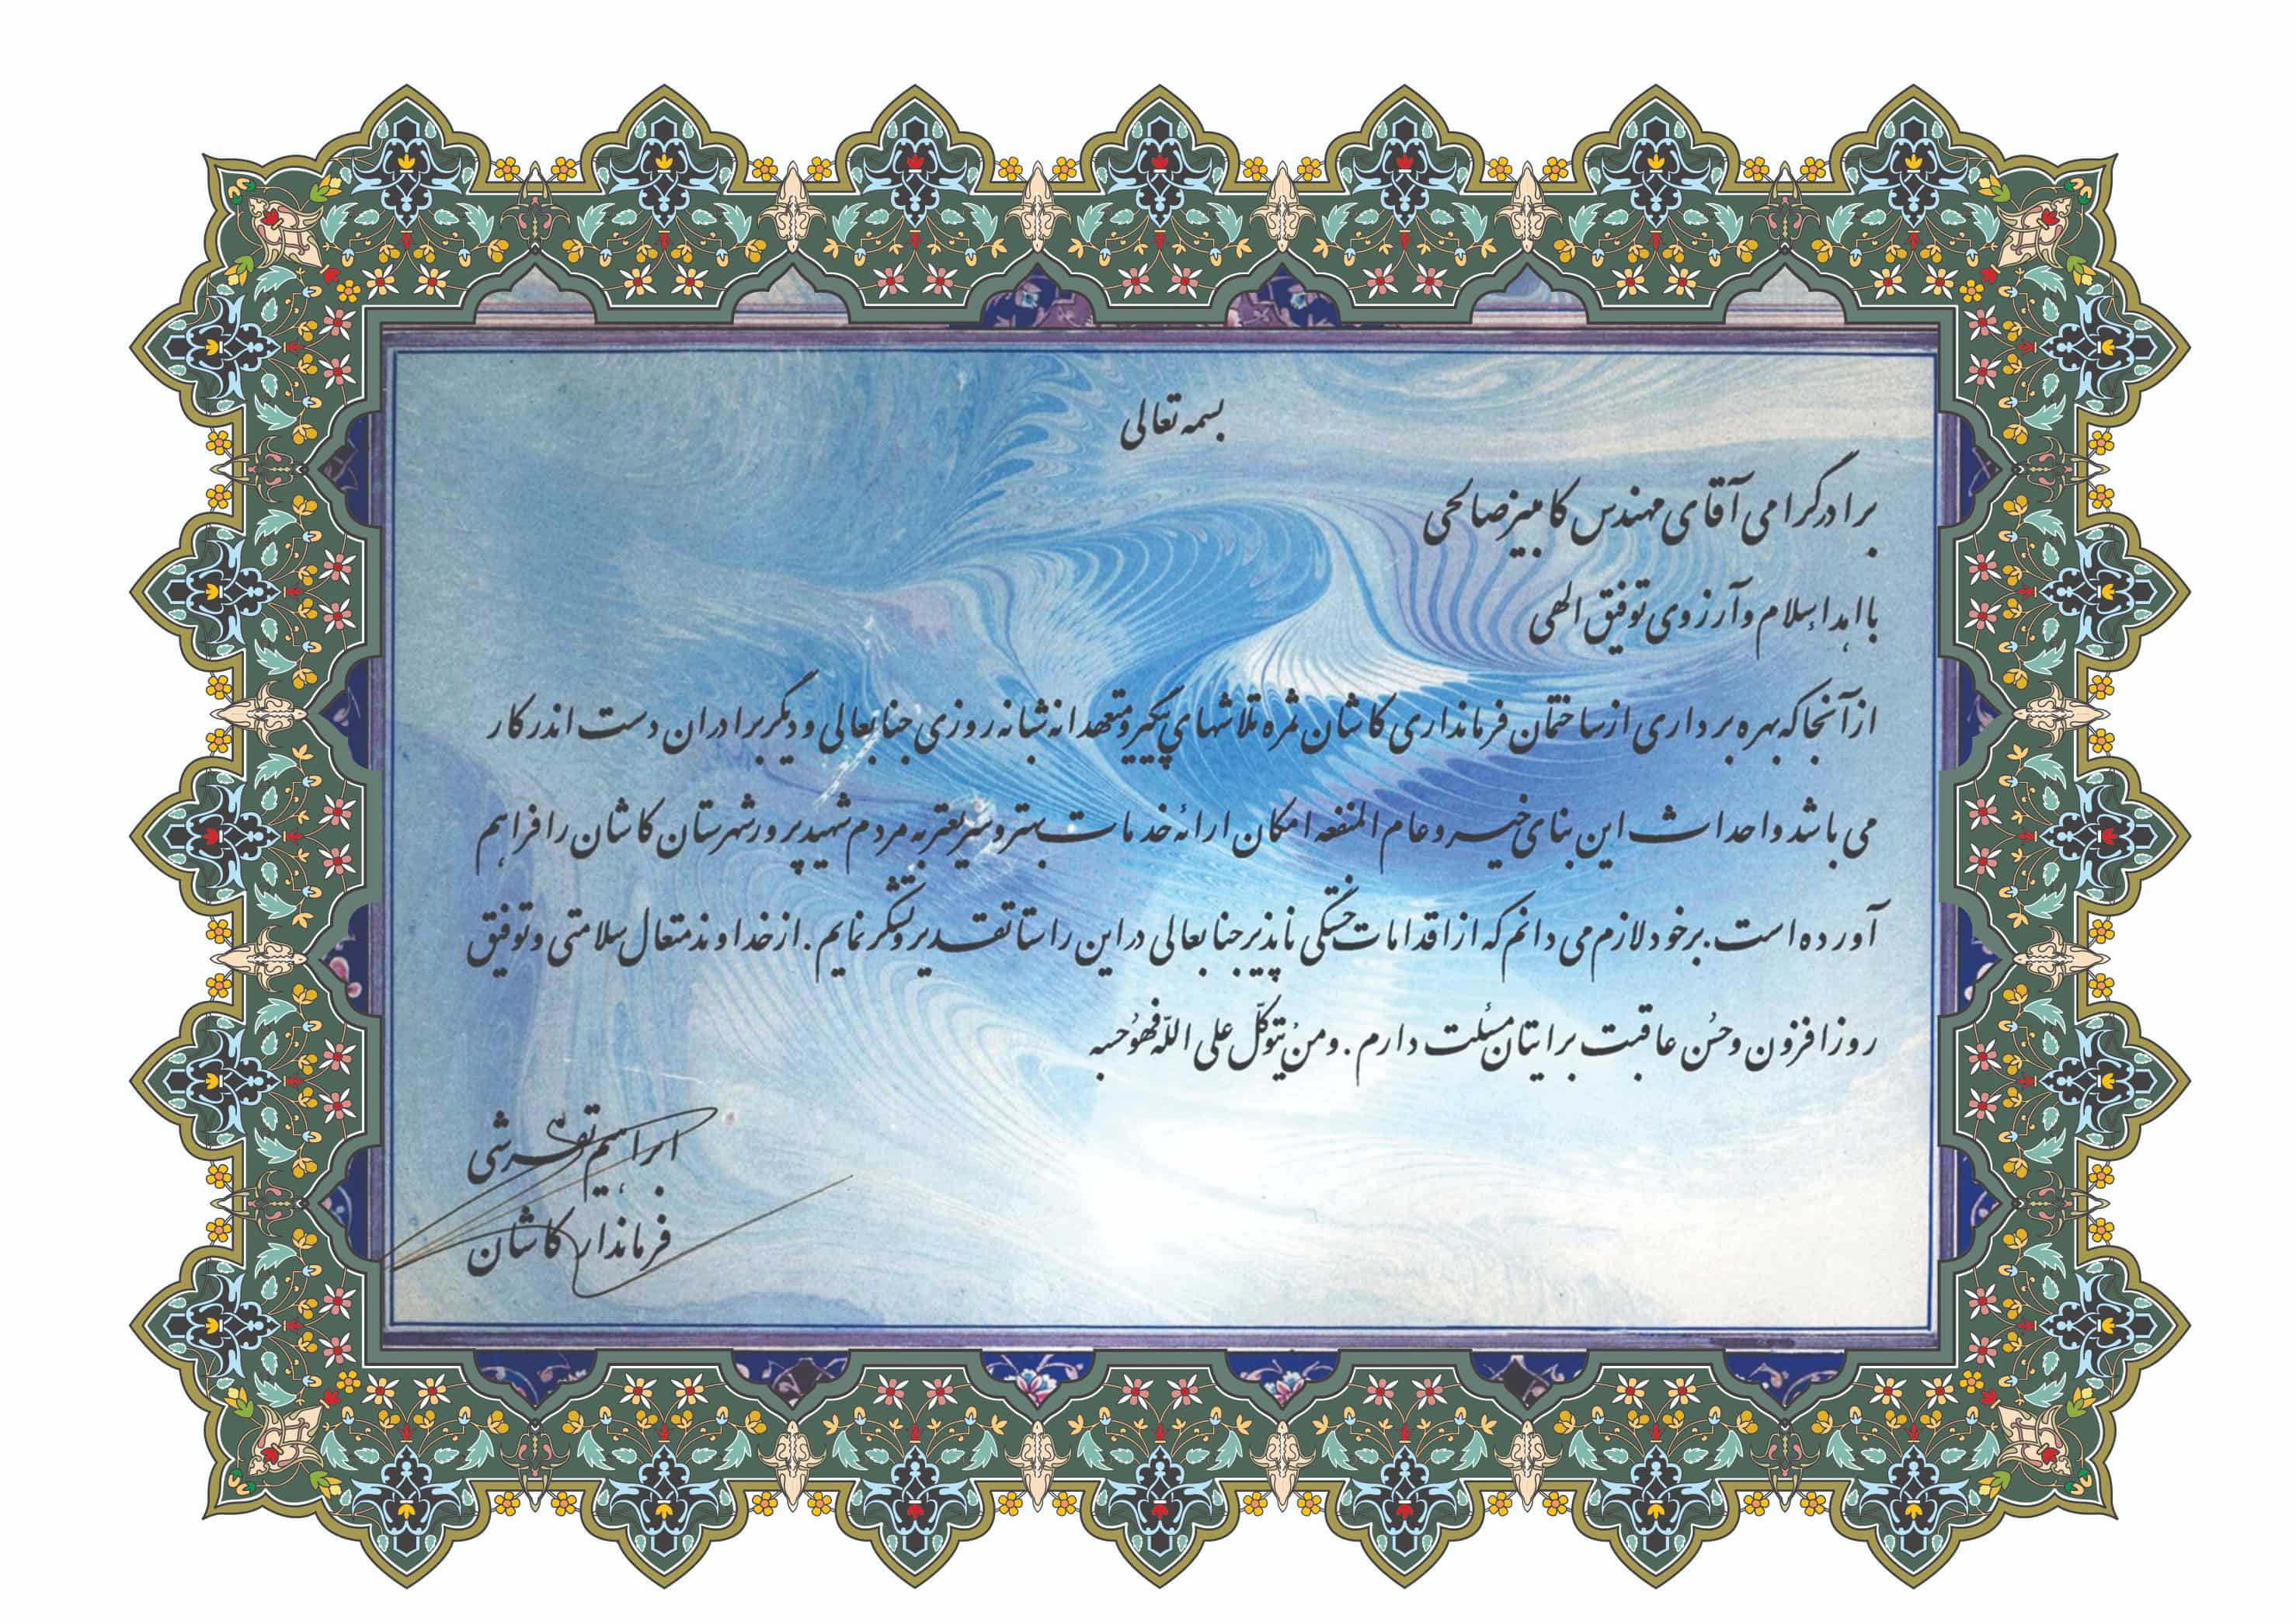 بسمه تعالی
برادر گرامی آقای مهندس کامبیز صالحی
با اهداء سلام و آرزوی توفیق الهی
از آنجا که بهره برداری از ساختمان فرمانداری کاشان ثمره تلاشهای پیگیر و متعهدانه شبانه روزی جنابعالی و دیگر برادران دست اندر کار
می باشد و احداث این بنای خیر و عام المنفعه امکان ارائه خدمات بهتر و سریعتر به مردم شهیدپرور شهرستان کاشان را فراهم
آورده است. بر خود لازم می دانم که از اقدامات خستگی ناپذیر جنابعالی در این راستا تقدیر و تشکر نمایم. از خداوند متعال سلامتی و توفیق
روز افزون و حسُن عاقبت برایتان مسئلت دارم. و منْ یتوکلّ علی اللّه فهوُ حسبه
ابراهیم تفرشی
فرماندار کاشان